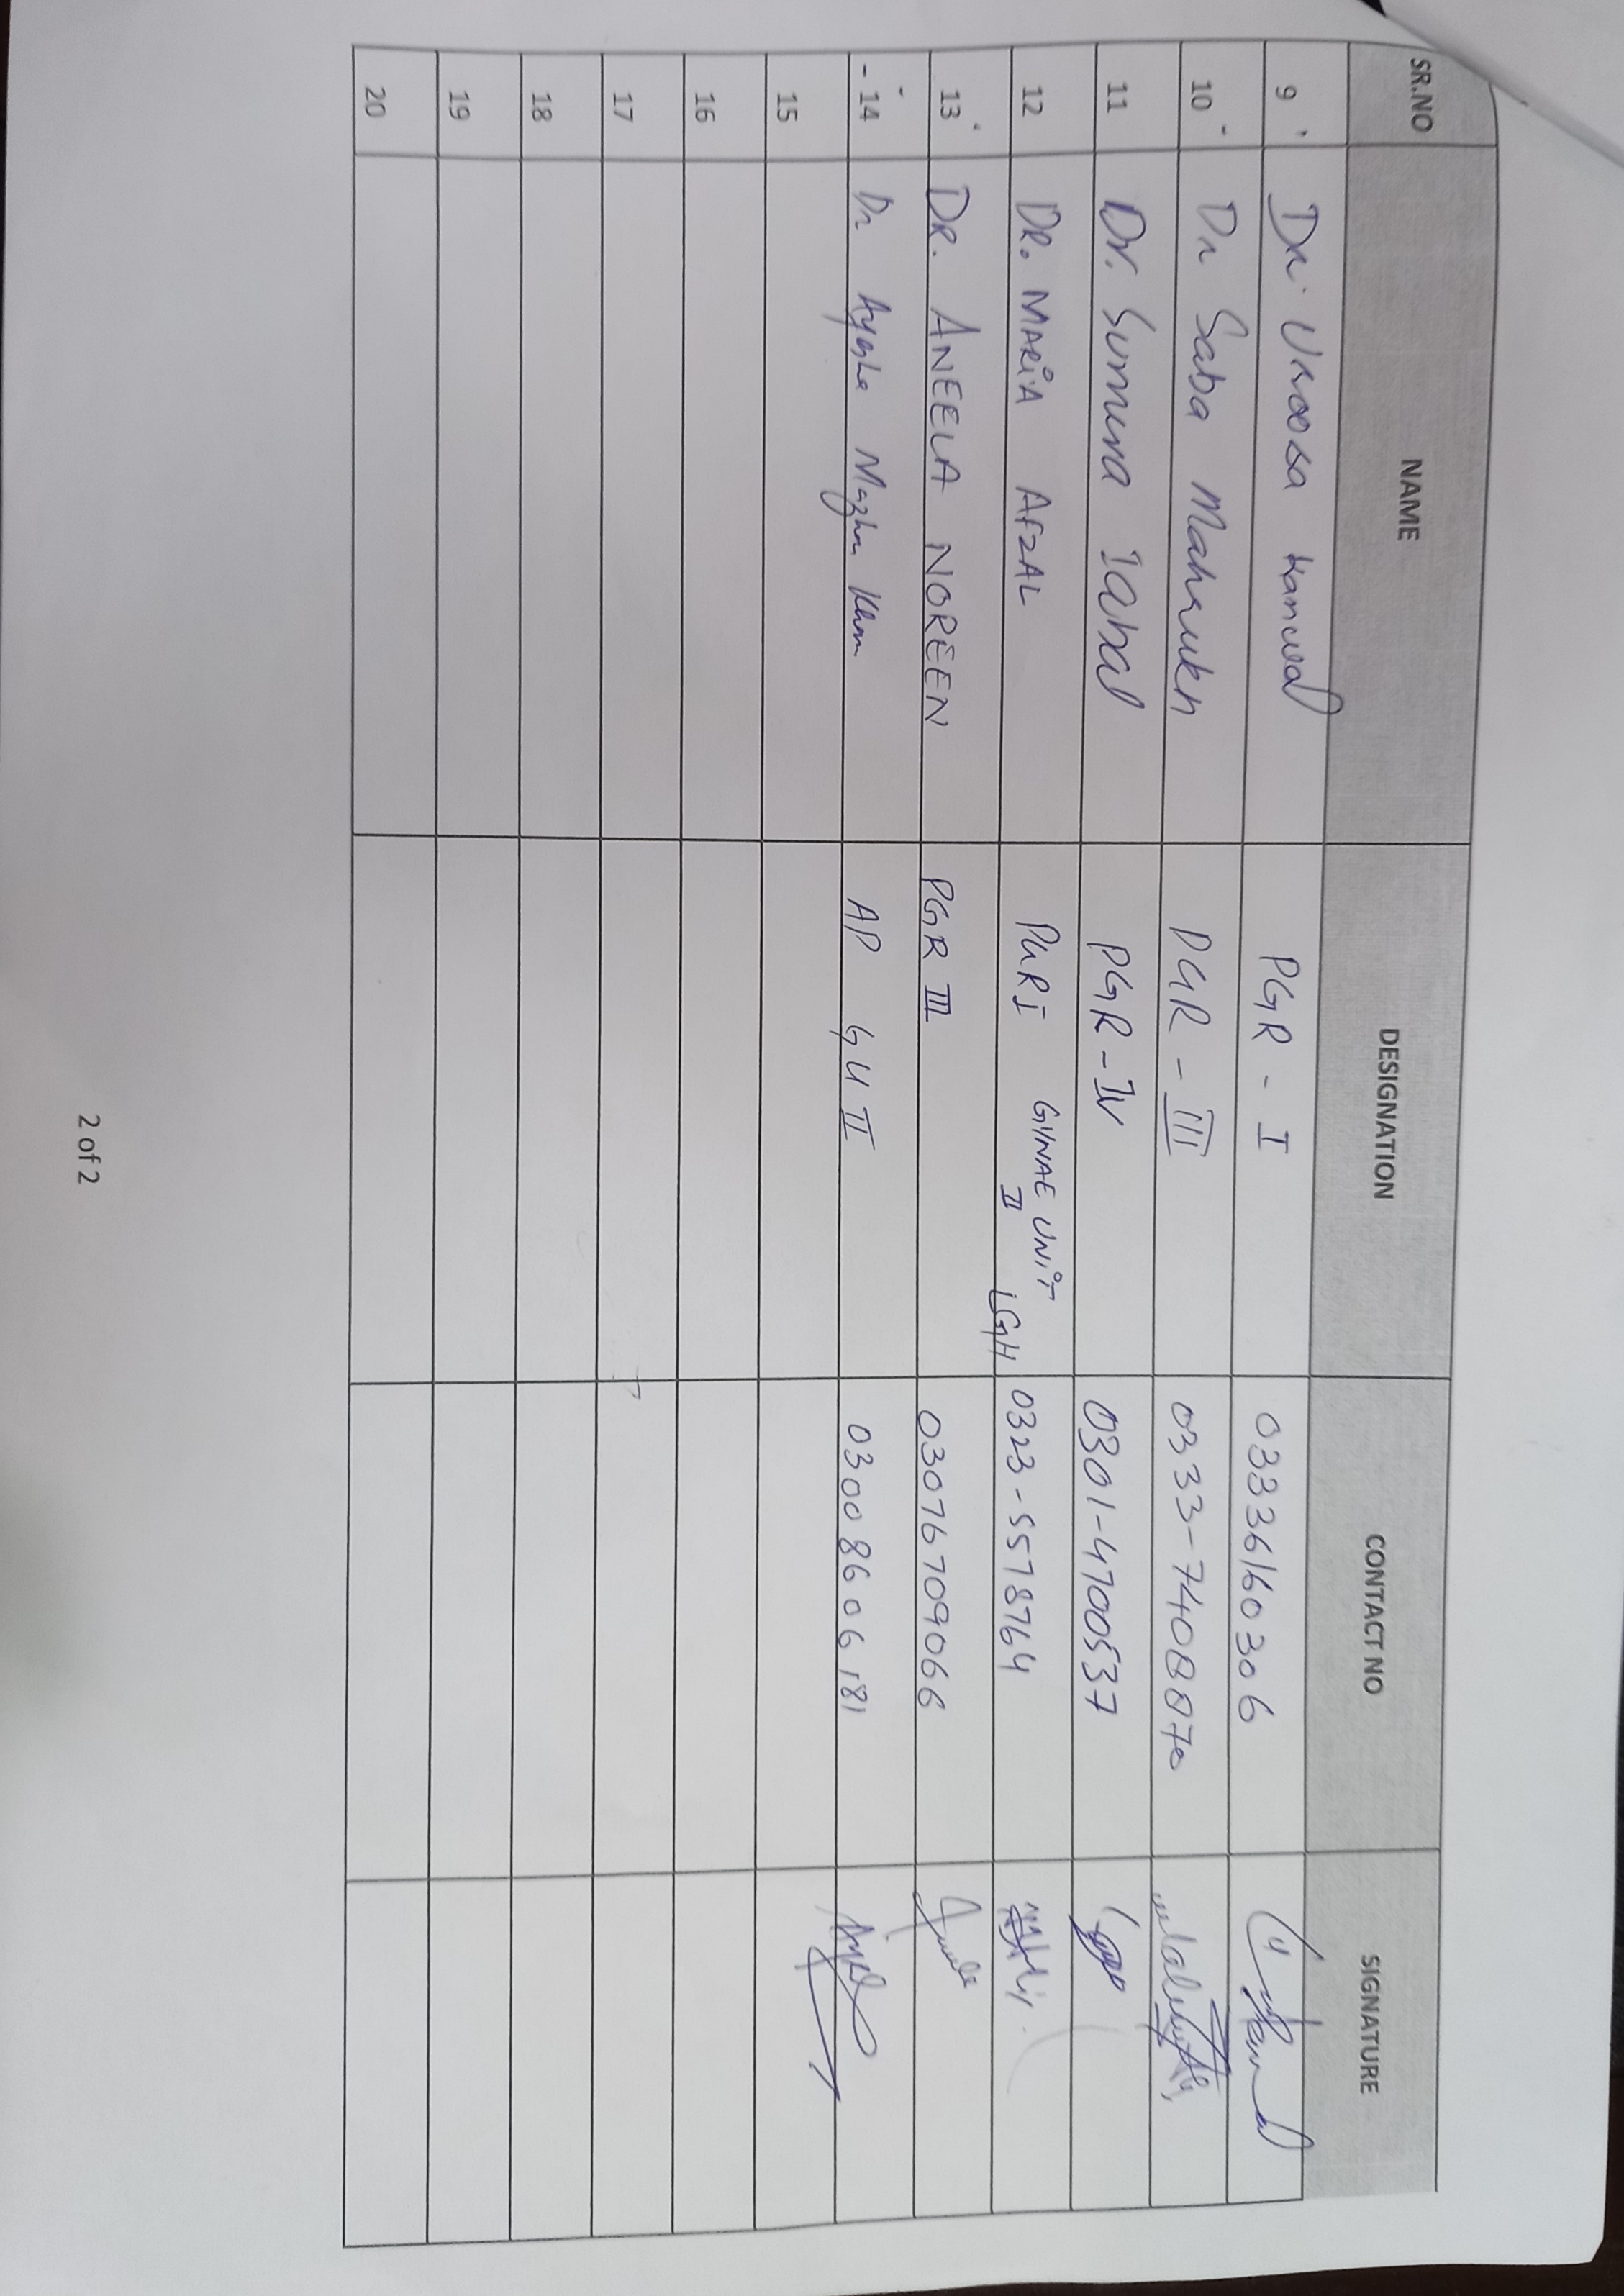 SR.NO NAME DESIGNATION CONTACT NO SIGNATURE
9 Dr. Uroosa Kanwal PGR - I 03336160306
10 Dr Saba Mahrukh PGR - III 0333-7408870
11 Dr. Sumera Iqbal PGR - IV 0301-4700537
12 DR. MARIA AFZAL PGR I GYNAE UNIT II LGH 0323-5578764
13 DR. ANEELA NOREEN PGR III 03076709066
14 Dr Ayesha Mazhar Khan AP GU II 03008606181
15
16
17
18
19
20
2 of 2